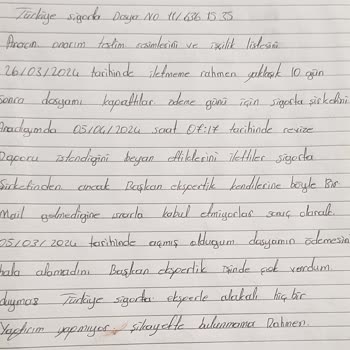 Türkiye sigorta Dosya NO 11/636 15 35
Aracın onarım teslim resimlerini ve işcilik listesini
26/03/2024 tarihinde iletmeme rahmen yaklaşık 10 gün
sonra dosyamı kapattılar ödeme günü için sigorta şirketini
Aradığımda 05/04/2024 saat 07:17 tarihinde revize
Raporu istendiğini beyan ettiklerini ilettiler sigorta
Şirketinden ancak Başkan ekspertik kendilerine böyle Bir
Mail gelmediğine ısrarla kabul etmiyorlar sonuç olarak
05/03/2024 tarihinde açmış olduğum dosyamın ödemesin
hala alamadım Başkan ekspertik işinde çok vurdum
duymas Türkiye sigorta eksperle alakalı hiç bir
Yaptırım yapmıyor şikayette bulunmama Rahmen.